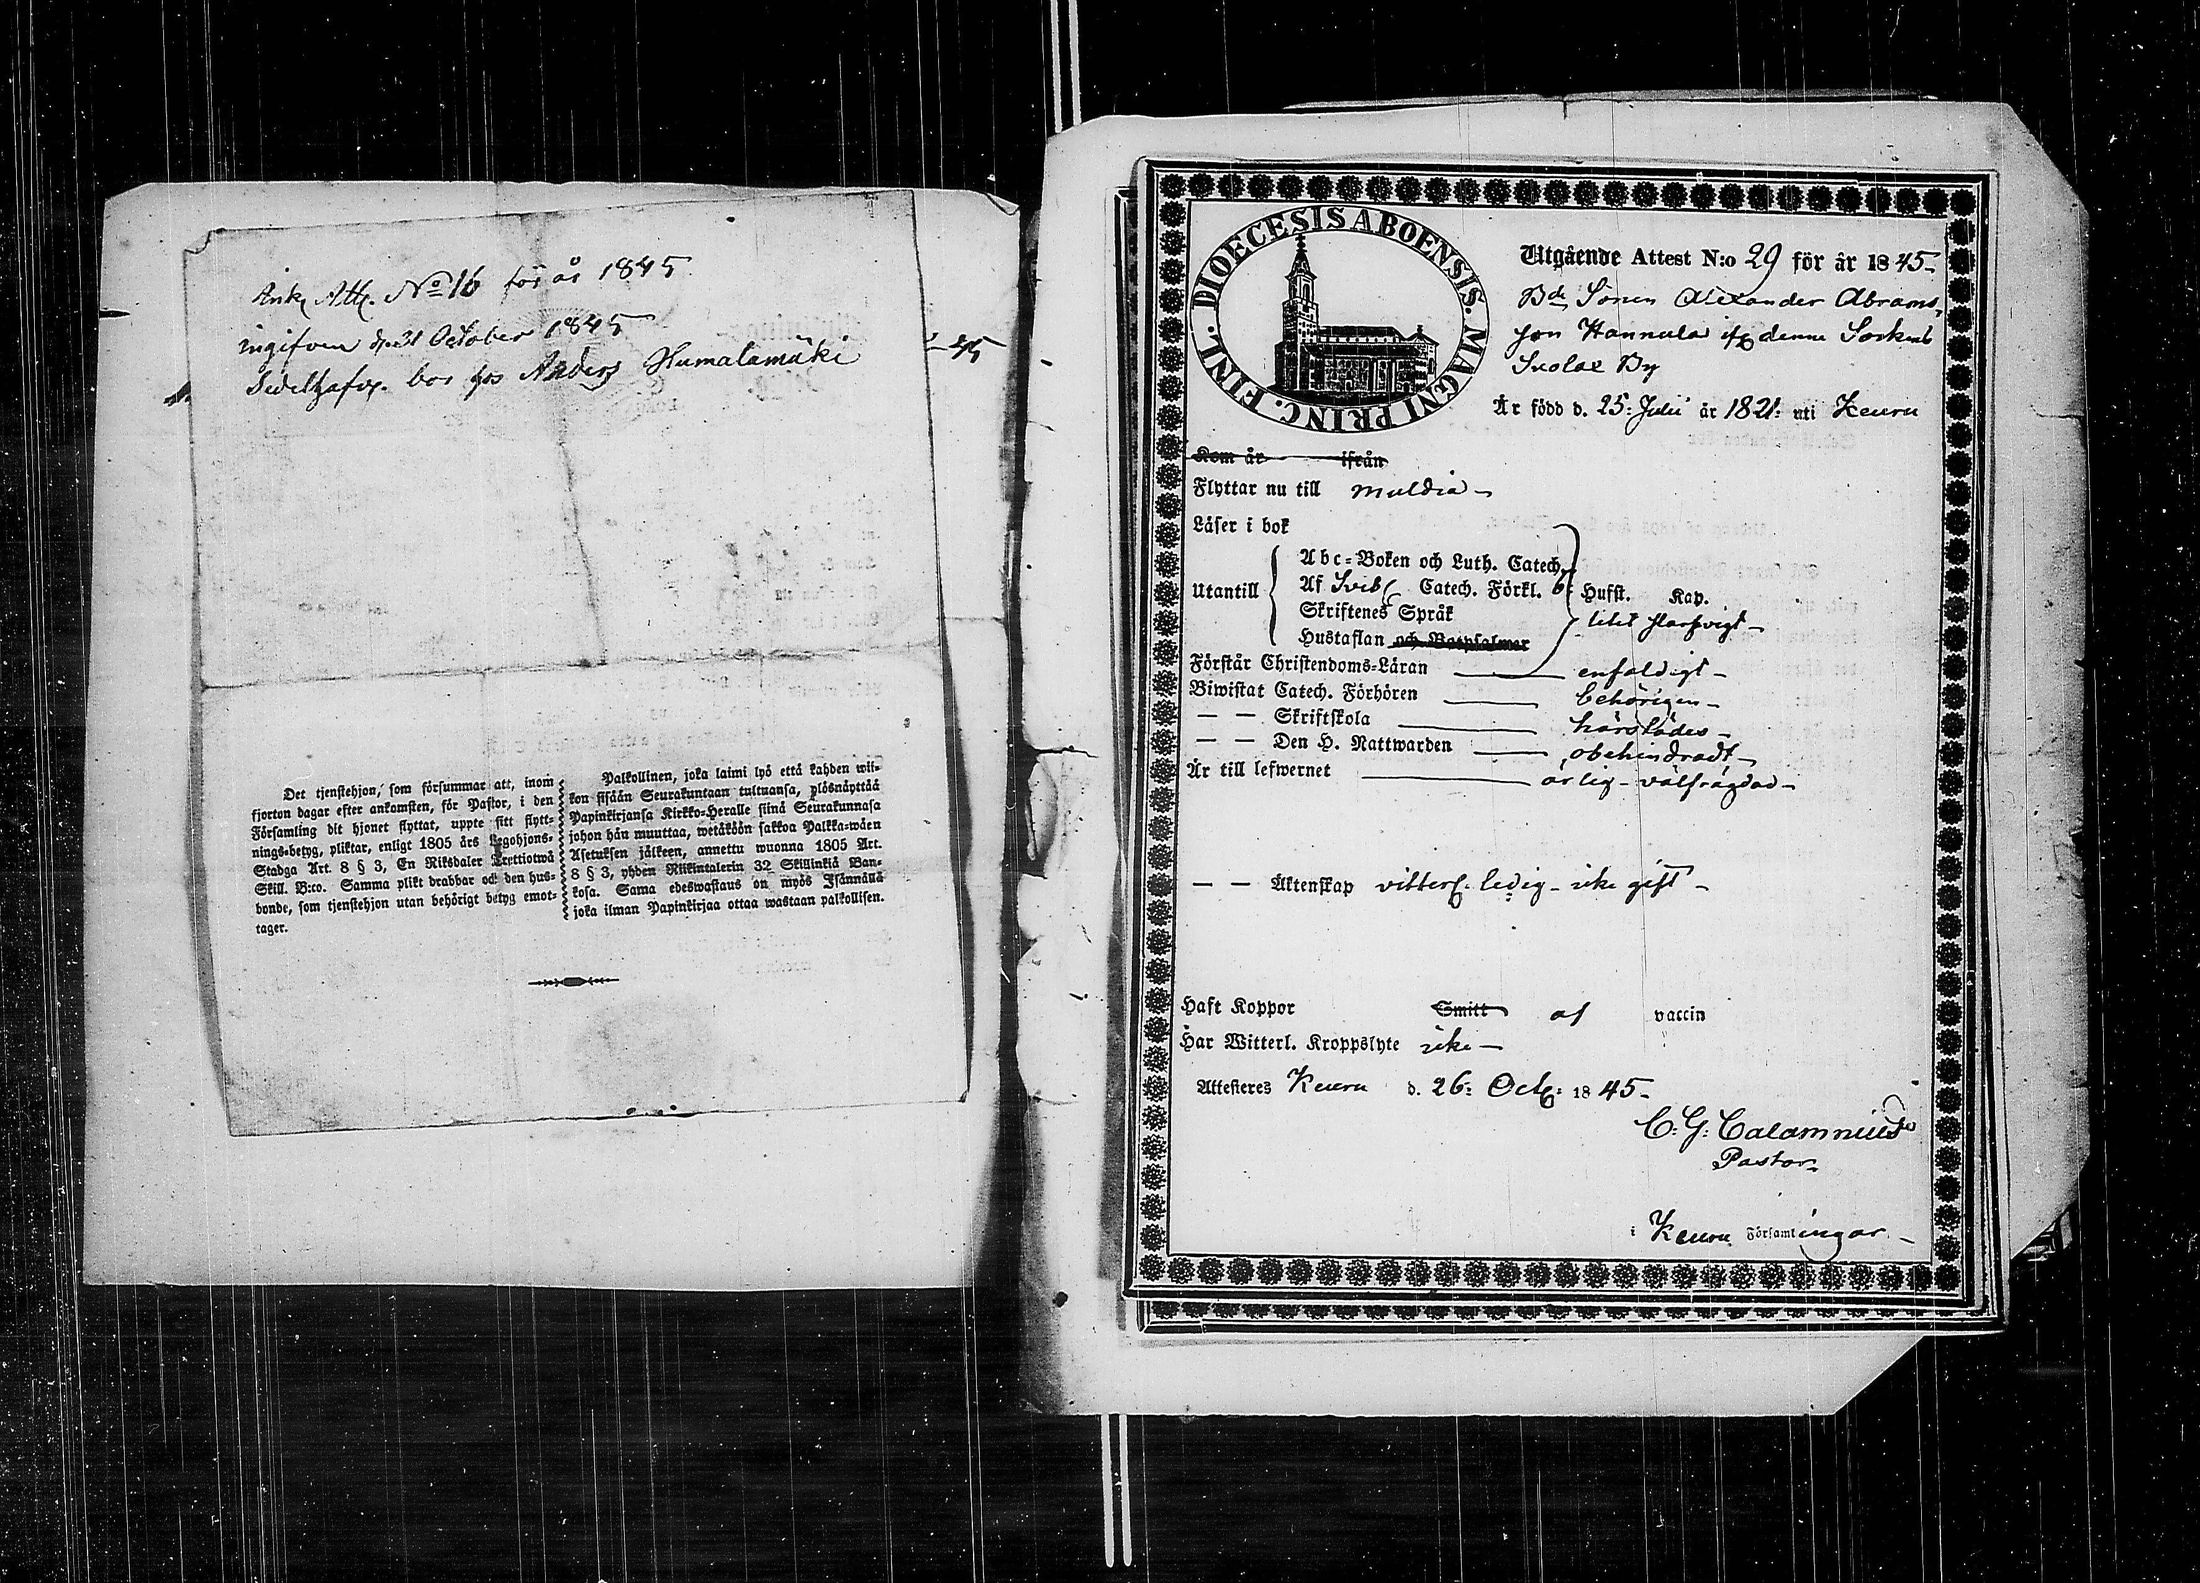 Ank. Att. No 16 för år 1845
ingifven d. 31 October 1845
Sedelhafv. bor hos Anders Humalamäki
-45
Det tjenstehjon, som försummar att, inom
fjorton dagar efter ankomsten, för Pastor, i den
Församling dit hjonet flyttat, uppte sitt flytt-
nings-betyg, pliktar, enligt 1805 års Legohjons-
Stadga Art. 8 § 3, En Riksdaler Trettiotwå
Skill. B:co. Samma plikt drabbar ock den hus-
bonde, som tjenstehjon utan behörigt betyg emot-
tager.
Palkollinen, joka laimi lyö että kahden wii-
kon sisään Seurakuntaan tultuansa, ylösnäyttää
Papinkirjansa Kirkko-Heralle siinä Seurakunnasa
johon hän muuttaa, wetäköön sakkoa Palkka-wäen
Asetuksen jälkeen, annettu wuonna 1805 Art.
8 § 3, yhden Riikintalerin 32 Skillinkiä Ban-
kosa. Sama edeswastaus on myös Isännällä
joka ilman Papinkirjaa ottaa wastaan palkollisen.
DIOECESIS ABOENSIS. MAGNI PRINC. FINL.
Utgående Attest N:o 29 för år 1845-
Bde Sonen Alexander Abrams-
son Hannula ifr denna Sockens
By
Är född d. 25: Julii år 1821: uti Keuru
Kom år ifrån
Flyttar nu till Muldia-
Läser i bok
Utantill
Abc-Boken och Luth. Catech.
Af Sveb. Catech. Förkl. 6: Hufst. Kap.
Skriftenes Språk
litet slarfvigt-
Hustaflan och Botpsalmer
Förstår Christendoms-Läran enfaldigt-
Biwistat Catech. Förhören behörigen-
— — Skriftskola härstädes-
— — Den H. Nattwarden obehindradt-
Är till lefwernet ärlig- välfrägdad-
— — Äktenskap vitterl. ledig- icke gift-
Haft Koppor Smitt af vaccin
Har Witterl. Kroppslyte icke-
Attesteres Keuru d. 26: Oct: 1845-
C: G: Calamnius
Pastor-
i Keuru Församlingar-